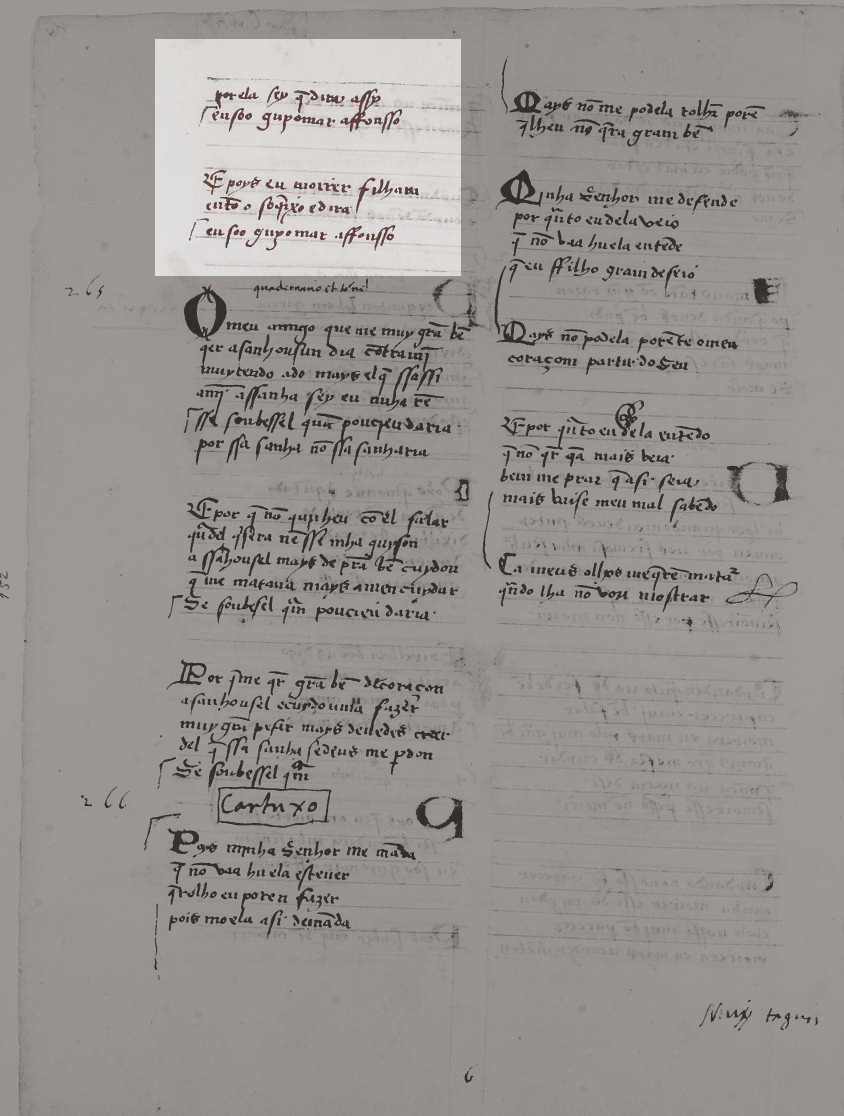 por ela sey q̄ dira assy
eu soo guyomar affonsso
E poys eu morrer filhara
entō o soq̄ixo e dira
eu soo guyomar affonsso
265
O meu amigo que me muy grā bē
q̄r asanhousun dia cōtra mī
muytendo ado mays el q̄ ssassi
assanha sey eu nūha rē
sse soubessel quā pouc eu daria
por ssa sanha nō ssa sanharia
E por q̄ nō quis heu cō el falar
a ssāhousel mays de prā bē cuydou
q̄ me matava mays amen cuydar
Se soubesel q̄m pouc eu daria
Por q̄ me q̄r grā bē de coraçon
asanhousel e cuydou mīa fazer
muy grā pesar mays devedes creer
del q̄ ssa sanha se deus me perdon
Se soubessel q̄m
266
Cartuxo
Poys mynha Senhor me māda
q̄ nō vaa hu ela estever
q̄rolho eu poren fazer
pois mo ela asi demāda
Mays nō me podela tolher porē
q̄ lheu nō q̄ira gram bē
Minha Senhor me defende
por quāto eu dela veio
q̄ nō vaa hu ela entēde
q̄ eu ffilho gram deseio
Mays nō podela porē te o meu
coraçom partir do Seu
E por quāto eu dela entēdo
q̄ nō q̄r q̄a mais veia
bem me praz q̄ asi seia
mais vaise meu mal sabēdo
Ca meus olhos me q̄rē matar
quādo lha nō vou mostrar
6